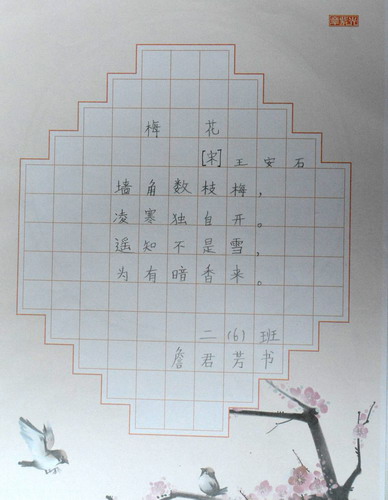 梅 花
[宋] 王 安 石
墙 角 数 枝 梅 ，
凌 寒 独 自 开 。
遥 知 不 是 雪 ，
为 有 暗 香 来 。
二 (6) 班
詹 君 芳 书